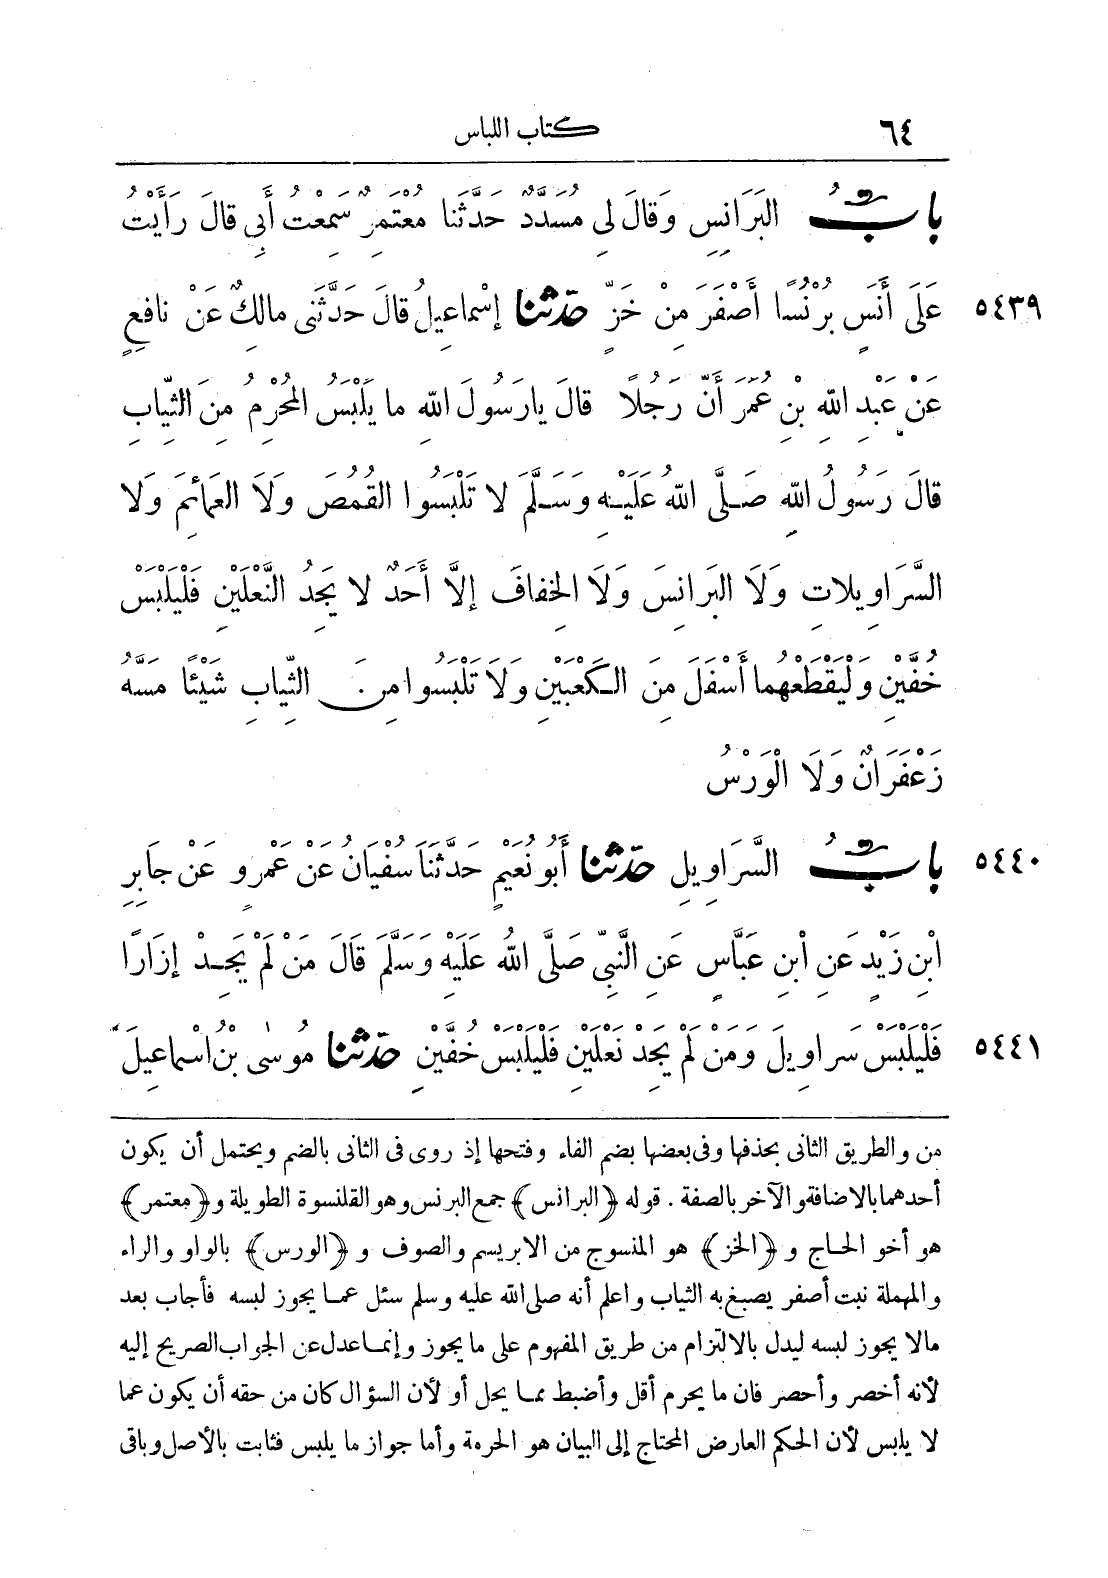 ٦٤ كتاب اللباس
بابُ البَرَانِسِ وَقَالَ لِي مُسَدَّدٌ حَدَّثَنَا مُعْتَمِرٌ سَمِعْتُ أَبِي قَالَ رَأَيْتُ
٥٤٣٩ عَلَى أَنَسٍ بُرْنُسًا أَصْفَرَ مِنْ خَزٍّ حدّثنا إِسْمَاعِيلُ قَالَ حَدَّثَنِي مَالِكٌ عَنْ نَافِعٍ
عَنْ عَبْدِ اللهِ بْنِ عُمَرَ أَنَّ رَجُلًا قَالَ يَارَسُولَ اللهِ مَا يَلْبَسُ المُحْرِمُ مِنَ الثِّيَابِ
قَالَ رَسُولُ اللهِ صَلَّى اللهُ عَلَيْهِ وَسَلَّمَ لَا تَلْبَسُوا القُمُصَ وَلَا العَمَائِمَ وَلَا
السَّرَاوِيلَاتِ وَلَا البَرَانِسَ وَلَا الخِفَافَ إِلَّا أَحَدٌ لَا يَجِدُ النَّعْلَيْنِ فَلْيَلْبَسْ
خُفَّيْنِ وَلْيَقْطَعْهُمَا أَسْفَلَ مِنَ الكَعْبَيْنِ وَلَا تَلْبَسُوا مِنَ الثِّيَابِ شَيْئًا مَسَّهُ
زَعْفَرَانٌ وَلَا الْوَرْسُ
٥٤٤٠ بابُ السَّرَاوِيلِ حدّثنا أَبُو نُعَيْمٍ حَدَّثَنَا سُفْيَانُ عَنْ عَمْرٍو عَنْ جَابِرِ
ابْنِ زَيْدٍ عَنِ ابْنِ عَبَّاسٍ عَنِ النَّبِيِّ صَلَّى اللهُ عَلَيْهِ وَسَلَّمَ قَالَ مَنْ لَمْ يَجِدْ إِزَارًا
٥٤٤١ فَلْيَلْبَسْ سَرَاوِيلَ وَمَنْ لَمْ يَجِدْ نَعْلَيْنِ فَلْيَلْبَسْ خُفَّيْنِ حدّثنا مُوسَى بْنُ إِسْمَاعِيلَ
من والطريق الثانى بحذفها وفى بعضها بضم الفاء وفتحها إذ روى فى الثانى بالضم ويحتمل أن يكون
أحدهما بالاضافة والآخر بالصفة . قوله ﴿البرانس﴾ جمع البرنس وهو القلنسوة الطويلة و﴿معتمر﴾
هو أخو الحاج و﴿الخز﴾ هو المنسوج من الابريسم والصوف و﴿الورس﴾ بالواو والراء
والمهملة نبت أصفر يصبغ به الثياب واعلم أنه صلى الله عليه وسلم سئل عما يجوز لبسه فأجاب بعد
مالا يجوز لبسه ليدل بالالتزام من طريق المفهوم على ما يجوز وإنما عدل عن الجواب الصريح إليه
لأنه أخصر وأحصر فان ما يحرم أقل وأضبط مما يحل أو لأن السؤال كان من حقه أن يكون عما
لا يلبس لأن الحكم العارض المحتاج إلى البيان هو الحرمة وأما جواز ما يلبس فثابت بالأصل وباقى